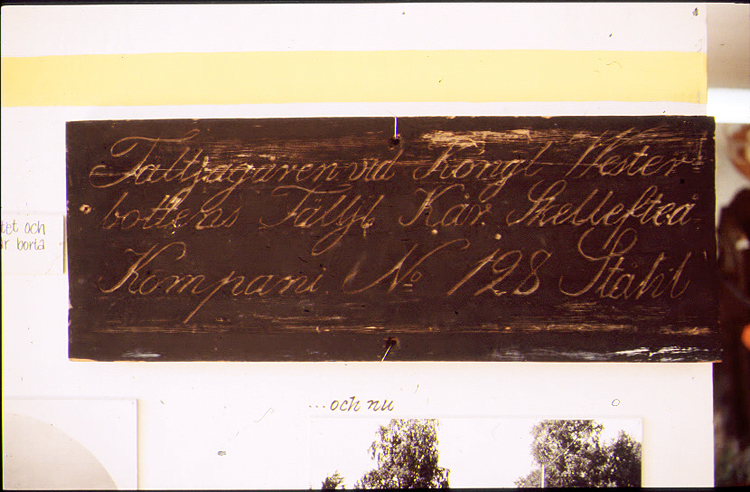 Fältjägaren vid Kongl Wester
bottens Fältj. Kår Skellefteå
Kompani No 128 Ståhl
tet och
är borta
...och nu